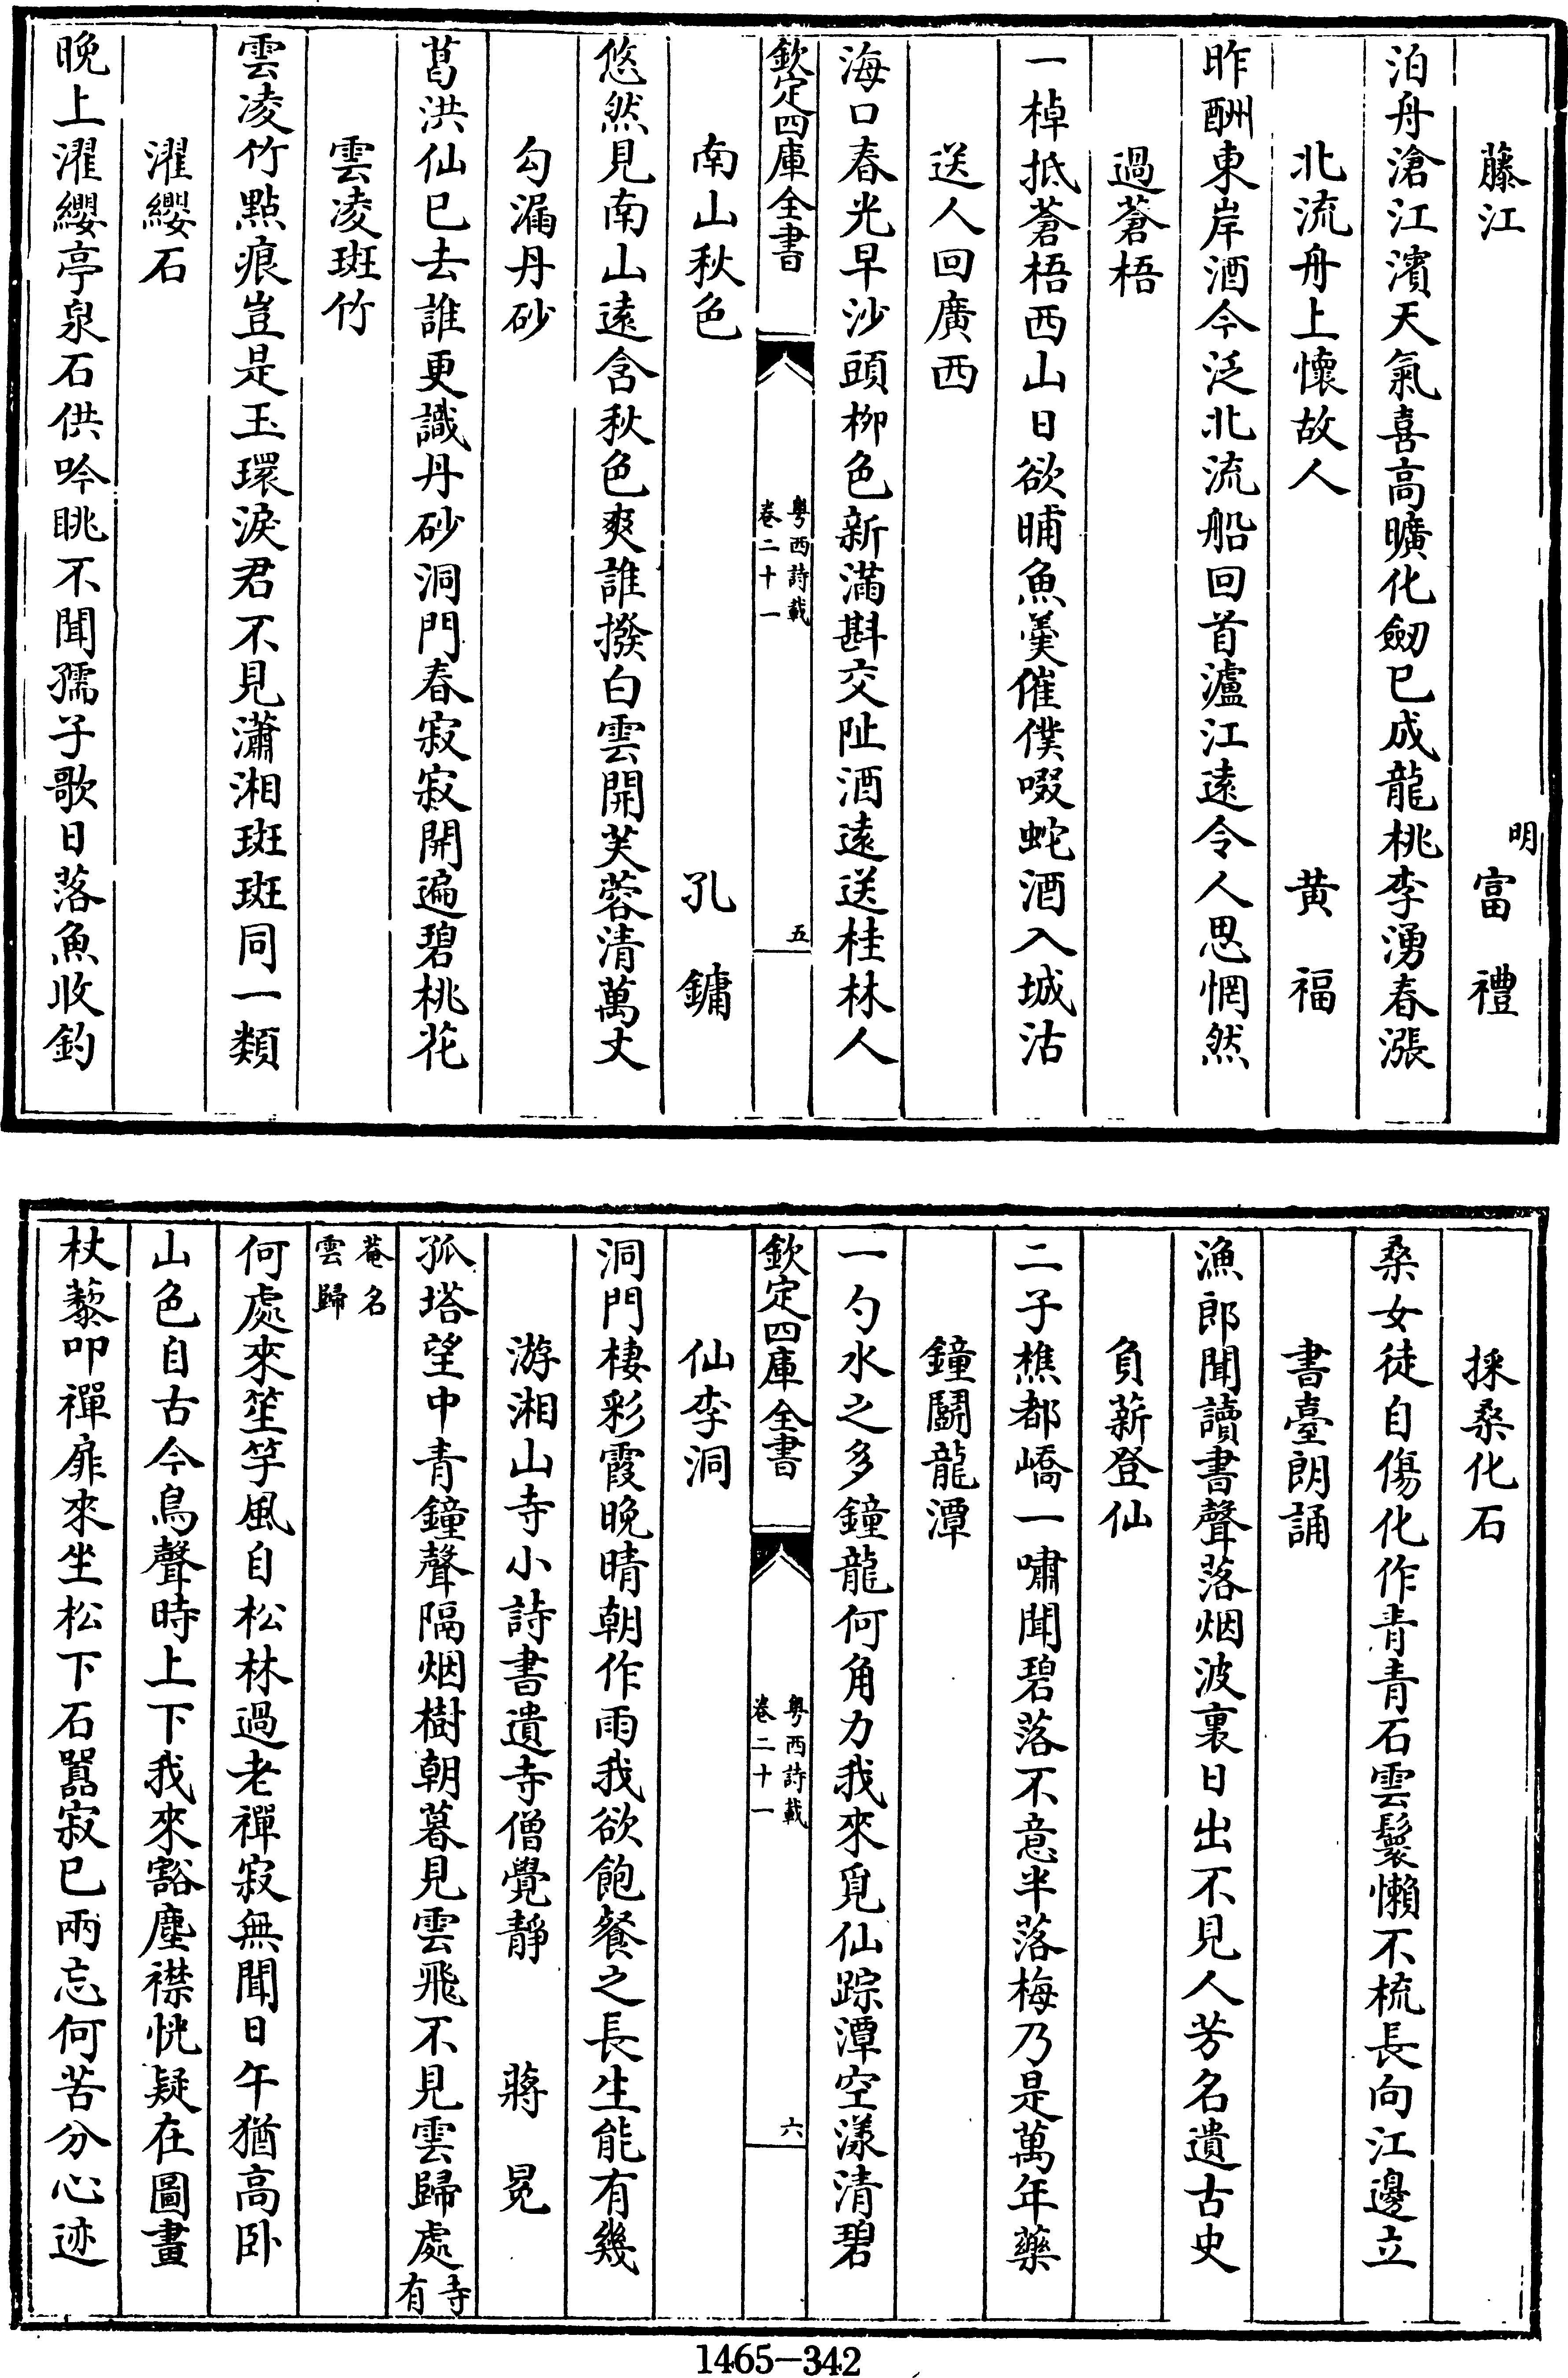 藤江　明富禮
泊舟滄江濱天氣喜高曠化劒已成龍桃李湧春漲
北流舟上懷故人　黄福
昨酬東岸酒今泛北流船回首瀘江遠令人思惘然
過蒼梧
一棹抵蒼梧西山日欲晡魚羮催僕啜蛇酒入城沽
送人回廣西
海口春光早沙頭柳色新滿斟交阯酒遠送桂林人
欽定四庫全書　粤西詩載卷二十一　五
南山秋色　孔鏞
悠然見南山遠含秋色爽誰撥白雲開芙蓉清萬丈
勾漏丹砂
葛洪仙已去誰更識丹砂洞門春寂寂開遍碧桃花
雲凌斑竹
雲凌竹點痕豈是玉環淚君不見瀟湘斑斑同一類
濯纓石
晚上濯纓亭泉石供吟眺不聞孺子歌日落魚收釣
採桑化石
桑女徒自傷化作青青石雲鬟懶不梳長向江邊立
書臺朗誦
漁郎聞讀書聲落烟波裏日出不見人芳名遺古史
負薪登仙
二子樵都嶠一嘯聞碧落不意半落梅乃是萬年藥
鐘鬬龍潭
一勺水之多鐘龍何角力我來覓仙踪潭空漾清碧
欽定四庫全書　粤西詩載卷二十一　六
仙李洞
洞門棲彩霞晚晴朝作雨我欲飽餐之長生能有幾
游湘山寺小詩書遺寺僧覺靜　蔣冕
孤塔望中青鐘聲隔烟樹朝暮見雲飛不見雲歸處寺有
菴名雲歸
何處來笙竽風自松林過老禪寂無聞日午猶高卧
山色自古今鳥聲時上下我來豁塵襟恍疑在圖畫
杖藜叩禪扉來坐松下石囂寂已兩忘何苦分心迹
1465-342